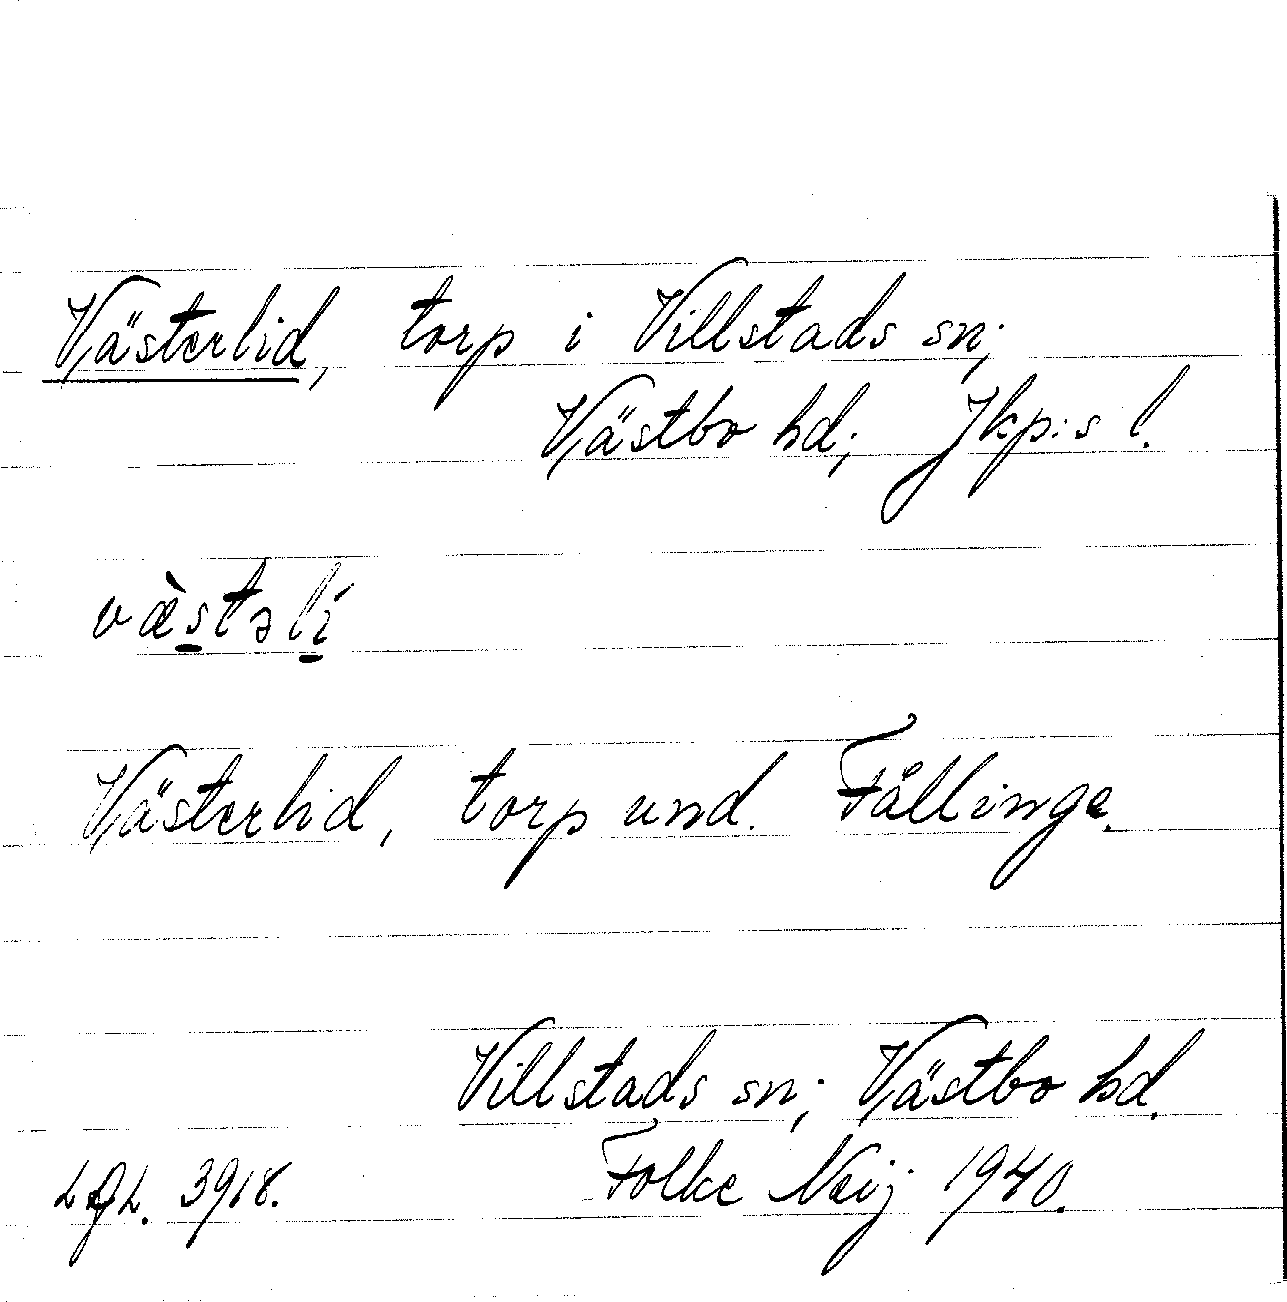 Västerlid, torp i Villstads sn;
Västbo hd; Jkp:s l.
væ̀stəlí
Västerlid, torp und. Fållinge.
Villstads sn; Västbo hd.
Folke Neij 1940.
3918.